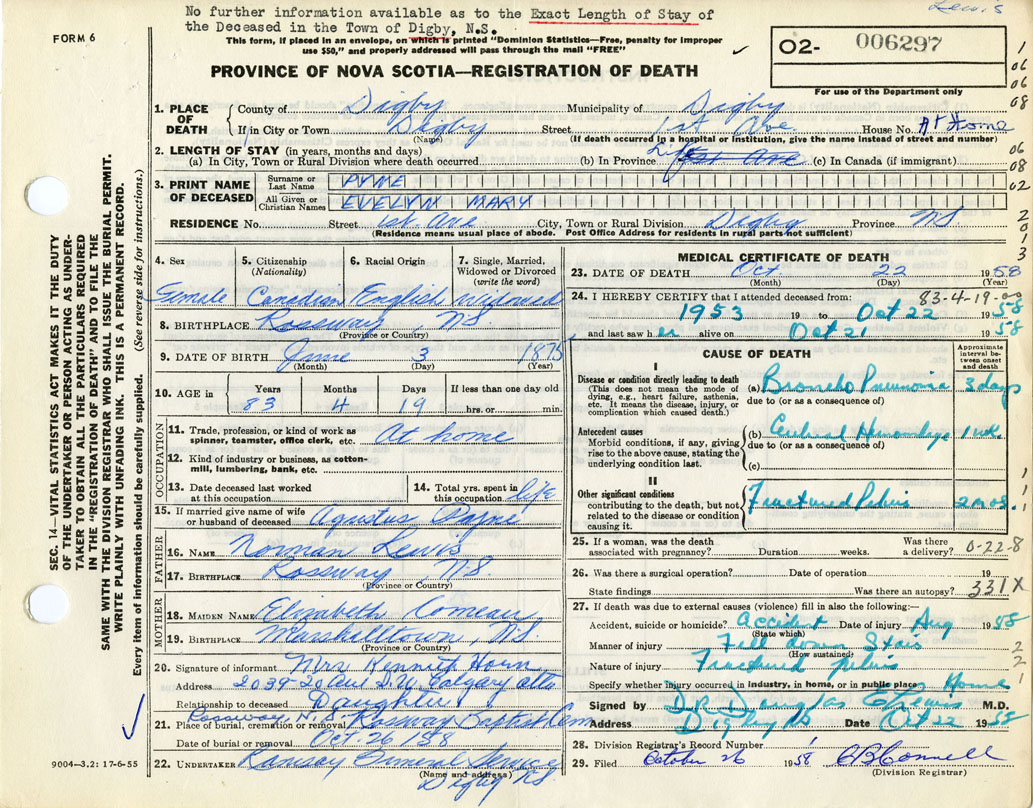 No further information available as to the Exact Length of Stay of
the Deceased in the Town of Digby, N.S.
Lewis
FORM 6
This form, if placed in an envelope, on which is printed "Dominion Statistics—Free, penalty for improper
use $50," and properly addressed will pass through the mail "FREE"
O2- 006297
For use of the Department only
PROVINCE OF NOVA SCOTIA—REGISTRATION OF DEATH
1. PLACE OF DEATH
County of Digby Municipality of Digby
If in City or Town Digby Street 1st Ave. House No. At Home
(Name) (If death occurred in a hospital or institution, give the name instead of street and number)
2. LENGTH OF STAY (in years, months and days)
(a) In City, Town or Rural Division where death occurred (b) In Province Life 1st Ave (c) In Canada (if immigrant)
3. PRINT NAME OF DECEASED
Surname or Last Name PYNE
All Given or Christian Names EVELYN MARY
RESIDENCE No. Street 1st. Ave City, Town or Rural Division Digby Province NS
(Residence means usual place of abode. Post Office Address for residents in rural parts not sufficient)
4. Sex 5. Citizenship (Nationality) 6. Racial Origin 7. Single, Married, Widowed or Divorced (write the word)
Female Canadian English widowed
8. BIRTHPLACE Rossway, NS
(Province or Country)
9. DATE OF BIRTH June 3 1875
(Month) (Day) (Year)
10. AGE in Years Months Days If less than one day old
83 4 19 hrs. or min.
OCCUPATION
11. Trade, profession or kind of work as spinner, teamster, office clerk, etc. At home
12. Kind of industry or business, as cotton-mill, lumbering, bank, etc.
13. Date deceased last worked at this occupation
14. Total yrs. spent in this occupation life
15. If married give name of wife or husband of deceased Agustus Payne
FATHER
16. NAME Norman Lewis
17. BIRTHPLACE Rossway, N.S.
(Province or Country)
MOTHER
18. MAIDEN NAME Elizabeth Comeau
19. BIRTHPLACE Marshalltown, NS
(Province or Country)
20. Signature of informant Mrs Kenneth Horn
Address 2039-20 Ave S.W. Calgary Alta
Relationship to deceased Daughter
21. Place of burial, cremation or removal Rossway N.S. Rossway Baptist Cem
Date of burial or removal Oct. 26 1958
22. UNDERTAKER Ramsay General Service
(Name and address) Digby NS
MEDICAL CERTIFICATE OF DEATH
23. DATE OF DEATH Oct 22 1958
(Month) (Day) (Year)
24. I HEREBY CERTIFY that I attended deceased from: 83-4-19-00
1953 19 to Oct 22 1958
and last saw her alive on Oct 21 1958
CAUSE OF DEATH
Approximate interval between onset and death
I
Disease or condition directly leading to death
(This does not mean the mode of dying, e.g., heart failure, asthenia, etc. It means the disease, injury, or complication which caused death.)
(a) Broncho Pneumonia 3 days
due to (or as a consequence of)
Antecedent causes
Morbid conditions, if any, giving rise to the above cause, stating the underlying condition last.
(b) Cerebral Hemorrhage 1 wk.
due to (or as a consequence of)
(c)
II
Other significant conditions
contributing to the death, but not related to the disease or condition causing it.
Fractured Pelvis 2 mos.
25. If a woman, was the death associated with pregnancy? Duration weeks. Was there a delivery? 0-22-8
26. Was there a surgical operation? Date of operation 19
State findings Was there an autopsy? 331X
27. If death was due to external causes (violence) fill in also the following:—
Accident, suicide or homicide? Accident Date of injury Aug 1958
(State which)
Manner of injury Fell down Stairs
(How sustained)
Nature of injury Fractured pelvis
Specify whether injury occurred in industry, in home, or in public place Home
Signed by Dr Douglas E Lewis M.D.
Address Digby NS Date Oct 22 1958
28. Division Registrar's Record Number 1
29. Filed October 26 1958
(Division Registrar)
SEC. 14—VITAL STATISTICS ACT MAKES IT THE DUTY
OF THE UNDERTAKER OR PERSON ACTING AS UNDER-
TAKER TO OBTAIN ALL THE PARTICULARS REQUIRED
IN THE "REGISTRATION OF DEATH" AND TO FILE THE
SAME WITH THE DIVISION REGISTRAR WHO SHALL ISSUE THE BURIAL PERMIT.
WRITE PLAINLY WITH UNFADING INK. THIS IS A PERMANENT RECORD.
Every item of information should be carefully supplied. (See reverse side for instructions.)
9004—3.2: 17-6-55
1
06
06
08
06
08
02
2
0
1
3
1
1
2
2
1